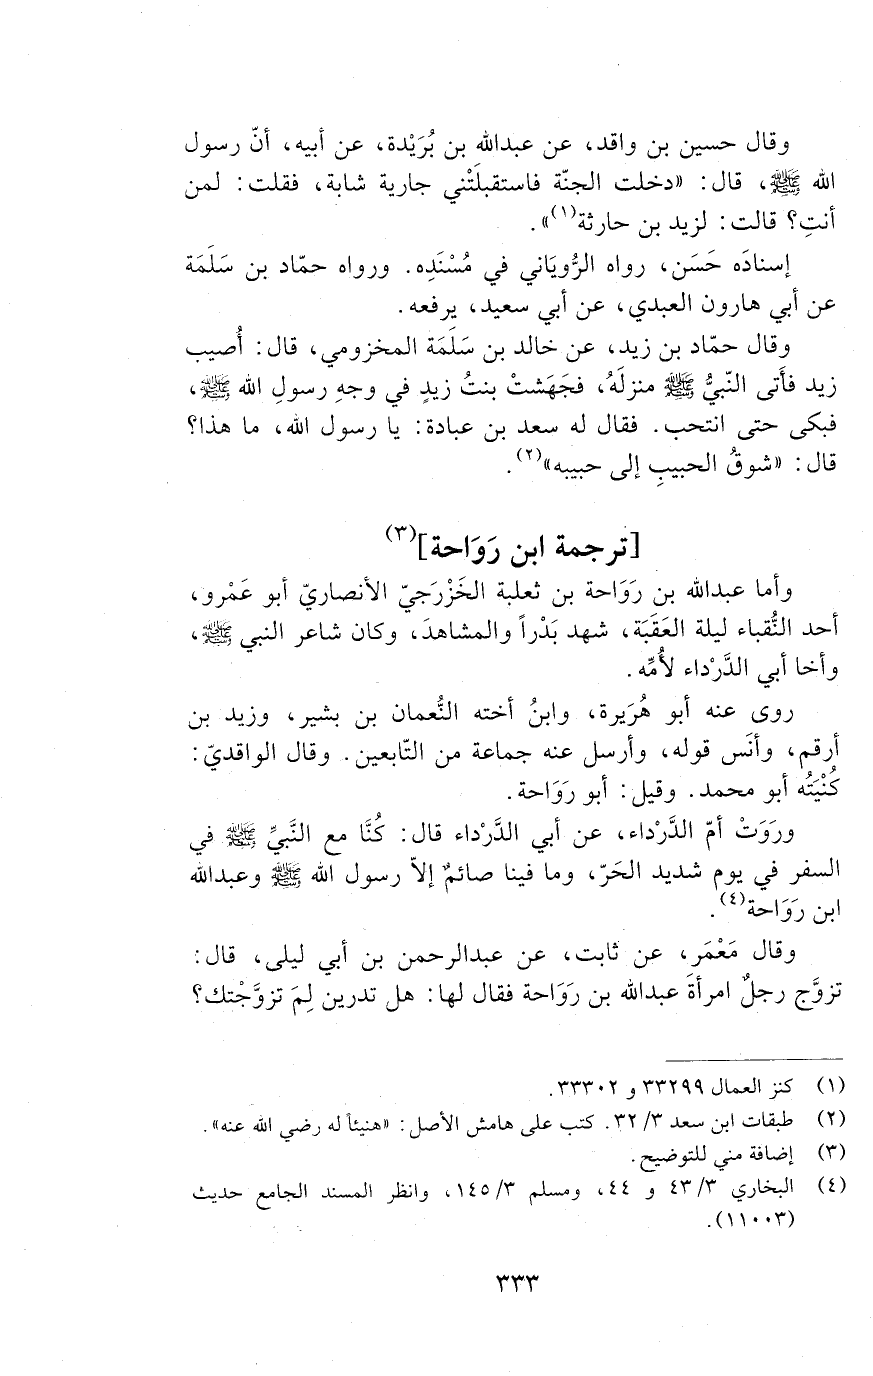 وقال حسين بن واقد، عن عبدالله بن بُرَيْدة، عن أبيه، أنّ رسول
الله ﷺ، قال: «دخلت الجنّة فاستقبلَتْني جارية شابة، فقلت: لمن
أنتِ؟ قالت: لزيد بن حارثة(١)».
إسنادَه حَسَن، رواه الرُّويَاني في مُسْنَدِه. ورواه حمّاد بن سَلَمَة
عن أبي هارون العبدي، عن أبي سعيد، يرفعه.
وقال حمّاد بن زيد، عن خالد بن سَلَمَة المخزومي، قال: أُصيب
زيد فأَتى النّبيُّ ﷺ منزلَهُ، فجَهَشتْ بنتُ زيدٍ في وجهِ رسولِ الله ﷺ،
فبكى حتى انتحب. فقال له سعد بن عبادة: يا رسول الله، ما هذا؟
قال: «شوقُ الحبيبِ إلى حبيبه»(٢).
[ترجمة ابن رَوَاحة](٣)
وأما عبدالله بن رَوَاحة بن ثعلبة الخَزْرَجيّ الأنصاريّ أبو عَمْرو،
أحد النُّقباء ليلة العَقَبَة، شهد بَدْراً والمشاهدَ، وكان شاعر النبي ﷺ،
وأخا أبي الدَّرْداء لأُمِّه.
روى عنه أبو هُرَيرة، وابنُ أخته النُّعمان بن بشير، وزيد بن
أرقم، وأنَس قوله، وأرسل عنه جماعة من التّابعين. وقال الواقديّ:
كُنْيَتُه أبو محمد. وقيل: أبو رَوَاحة.
ورَوَتْ أمّ الدَّرْداء، عن أبي الدَّرْداء قال: كُنَّا مع النَّبيِّ ﷺ في
السفر في يوم شديد الحَرّ، وما فينا صائمٌ إلاّ رسول الله ﷺ وعبدالله
ابن رَوَاحة(٤).
وقال مَعْمَر، عن ثابت، عن عبدالرحمن بن أبي ليلى، قال:
تزوَّج رجلٌ امرأةَ عبدالله بن رَوَاحة فقال لها: هل تدرين لِمَ تزوَّجْتك؟
(١) كنز العمال ٣٣٢٩٩ و ٣٣٣٠٢.
(٢) طبقات ابن سعد ٣/ ٣٢. كتب على هامش الأصل: «هنيئاً له رضي الله عنه».
(٣) إضافة مني للتوضيح.
(٤) البخاري ٣/ ٤٣ و ٤٤، ومسلم ٣/ ١٤٥، وانظر المسند الجامع حديث
(١١٠٠٣).
٣٣٣